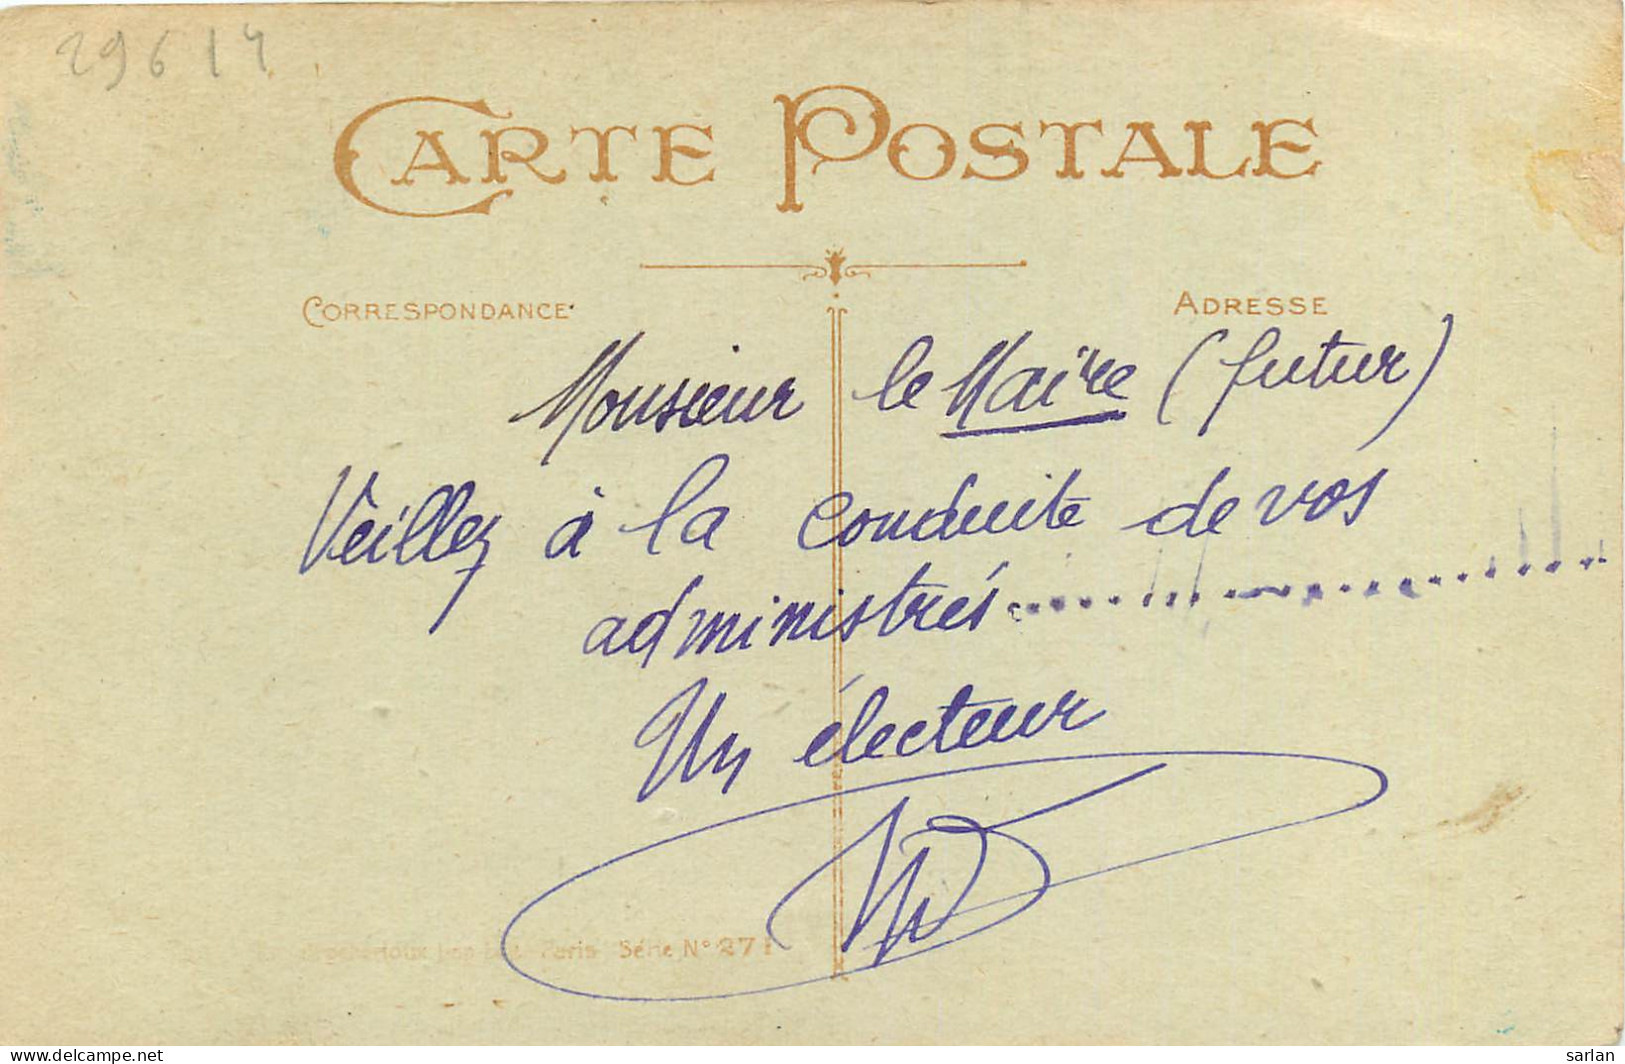 29614
CARTE POSTALE
CORRESPONDANCE
ADRESSE
Monsieur le Maire (futur)
Veillez à la conduite de vos
administrés..........
Un électeur
Paris Série N° 271
sarlan